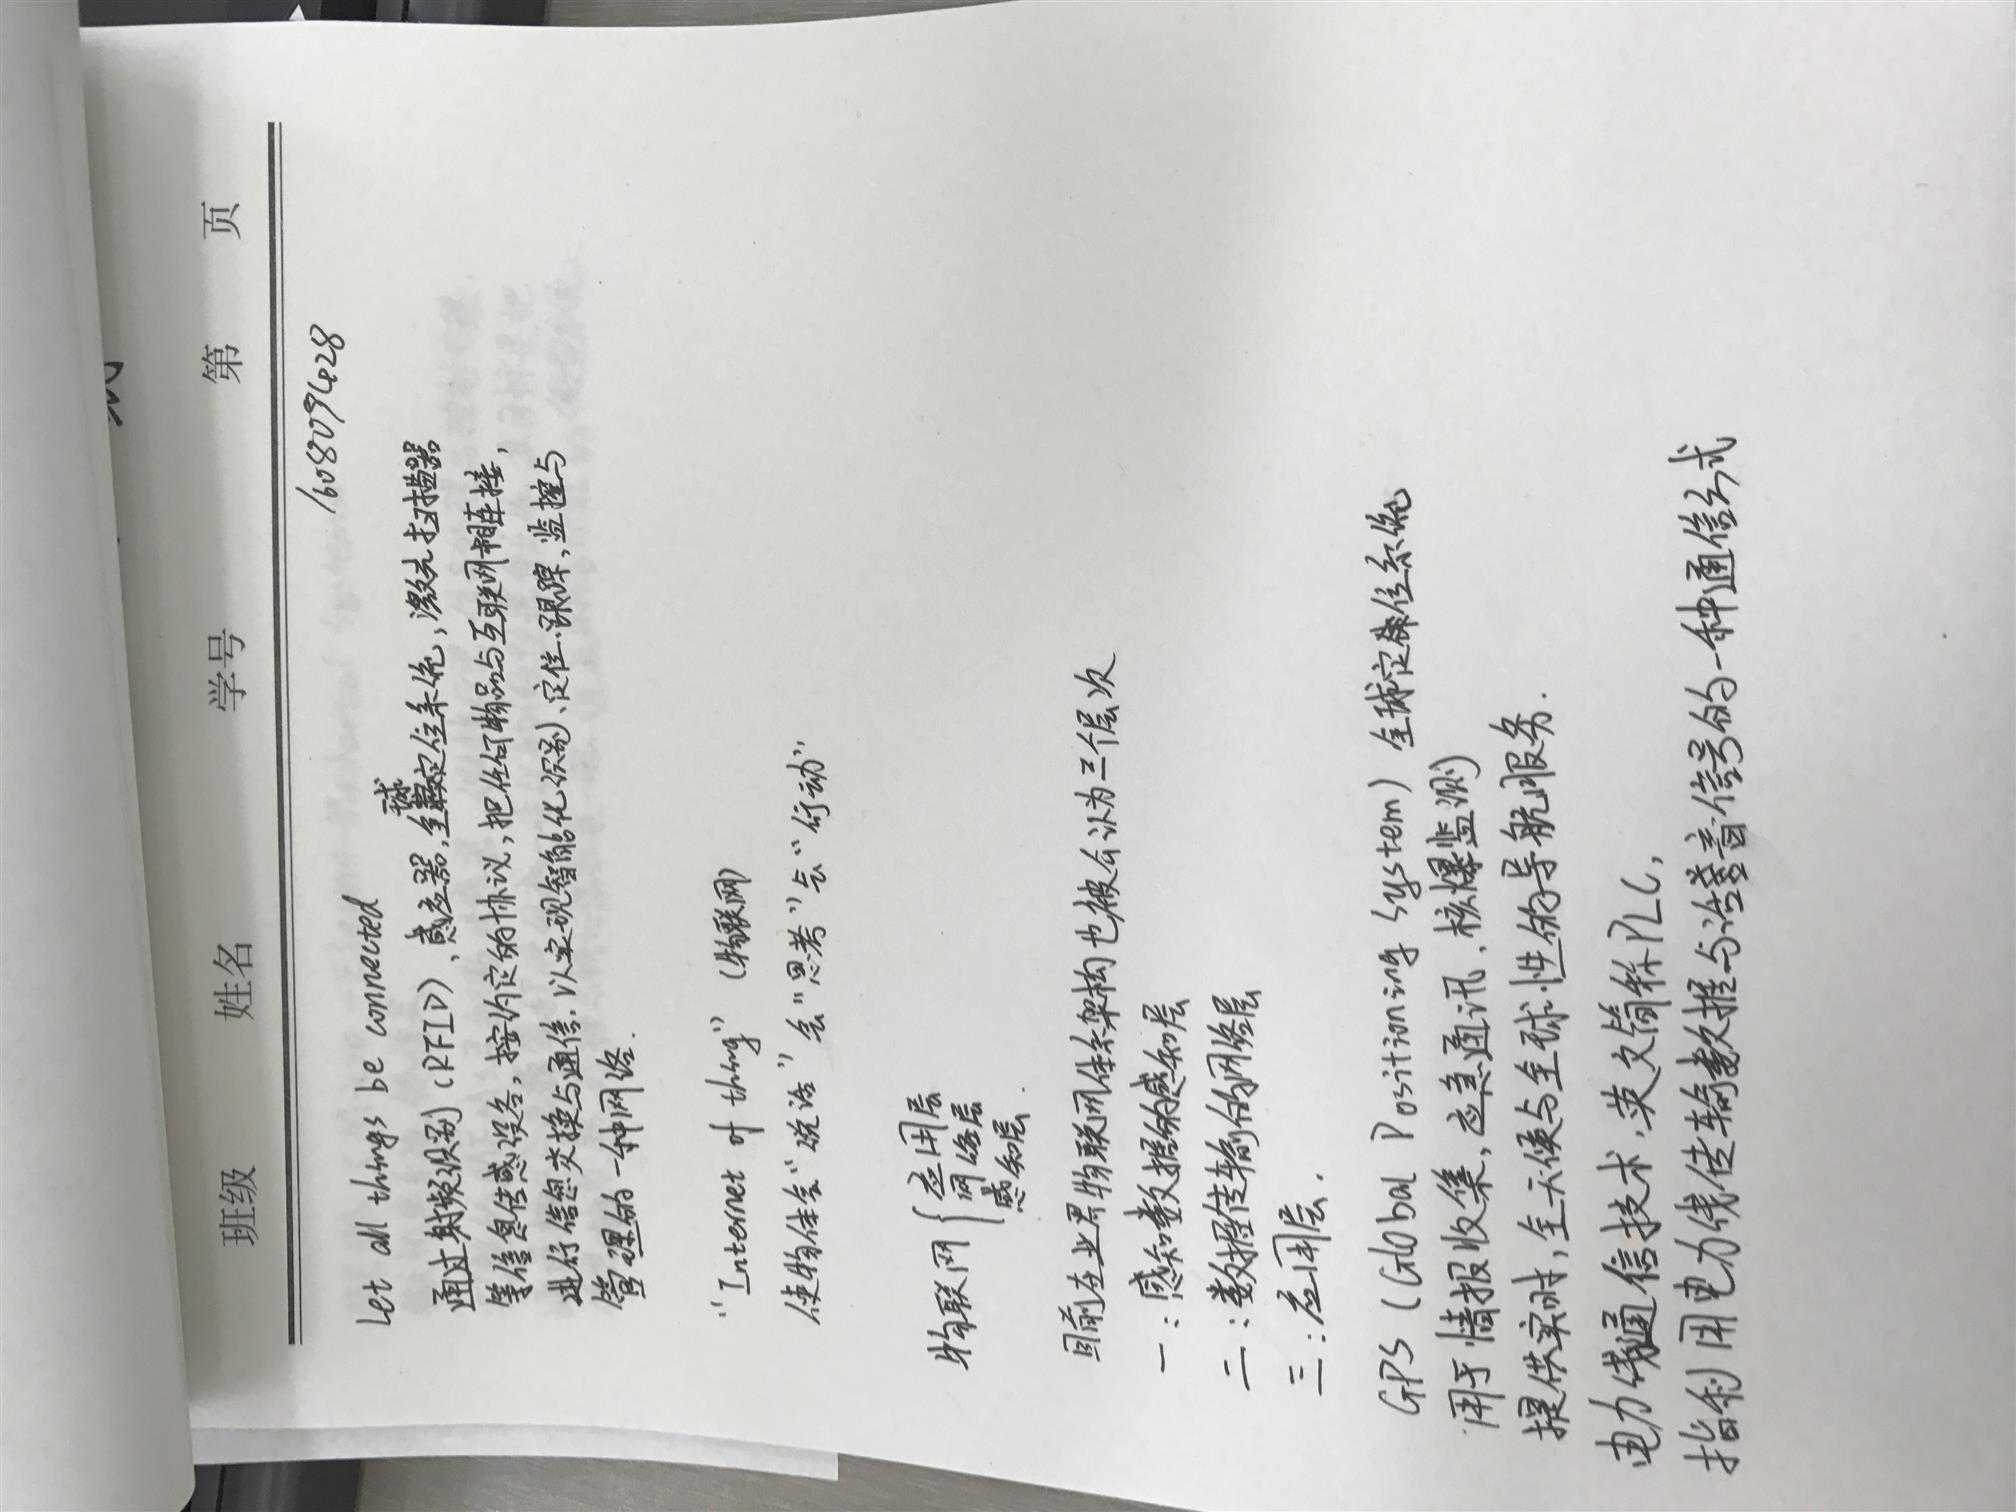 班级 姓名 学号 第 页
1608094228
Let all things be connected
通过射频识别(RFID)、感应器,全球定位系统,激光扫描器
等信息传感设备,按约定的协议,把任何物品与互联网相连接,
进行信息交换与通信,以实现智能化识别、定位、跟踪,监控与
管理的一种网络.
"Internet of thing" (物联网)
使物体会"说话"会"思考"会"行动"
物联网{应用层
网络层
感知层.
目前在业界物联网体系架构也被公认为三个层次
一:感知数据的感知层
二:数据传输的网络层
三:应用层.
GPS (Global Positioning System) 全球定位系统
用于情报收集,应急通讯、核爆监测)
提供实时,全天候与全球性的导航服务.
电力线通信技术,英文简称PLC,
指利用电力线传输数据与语音信号的一种通信方式